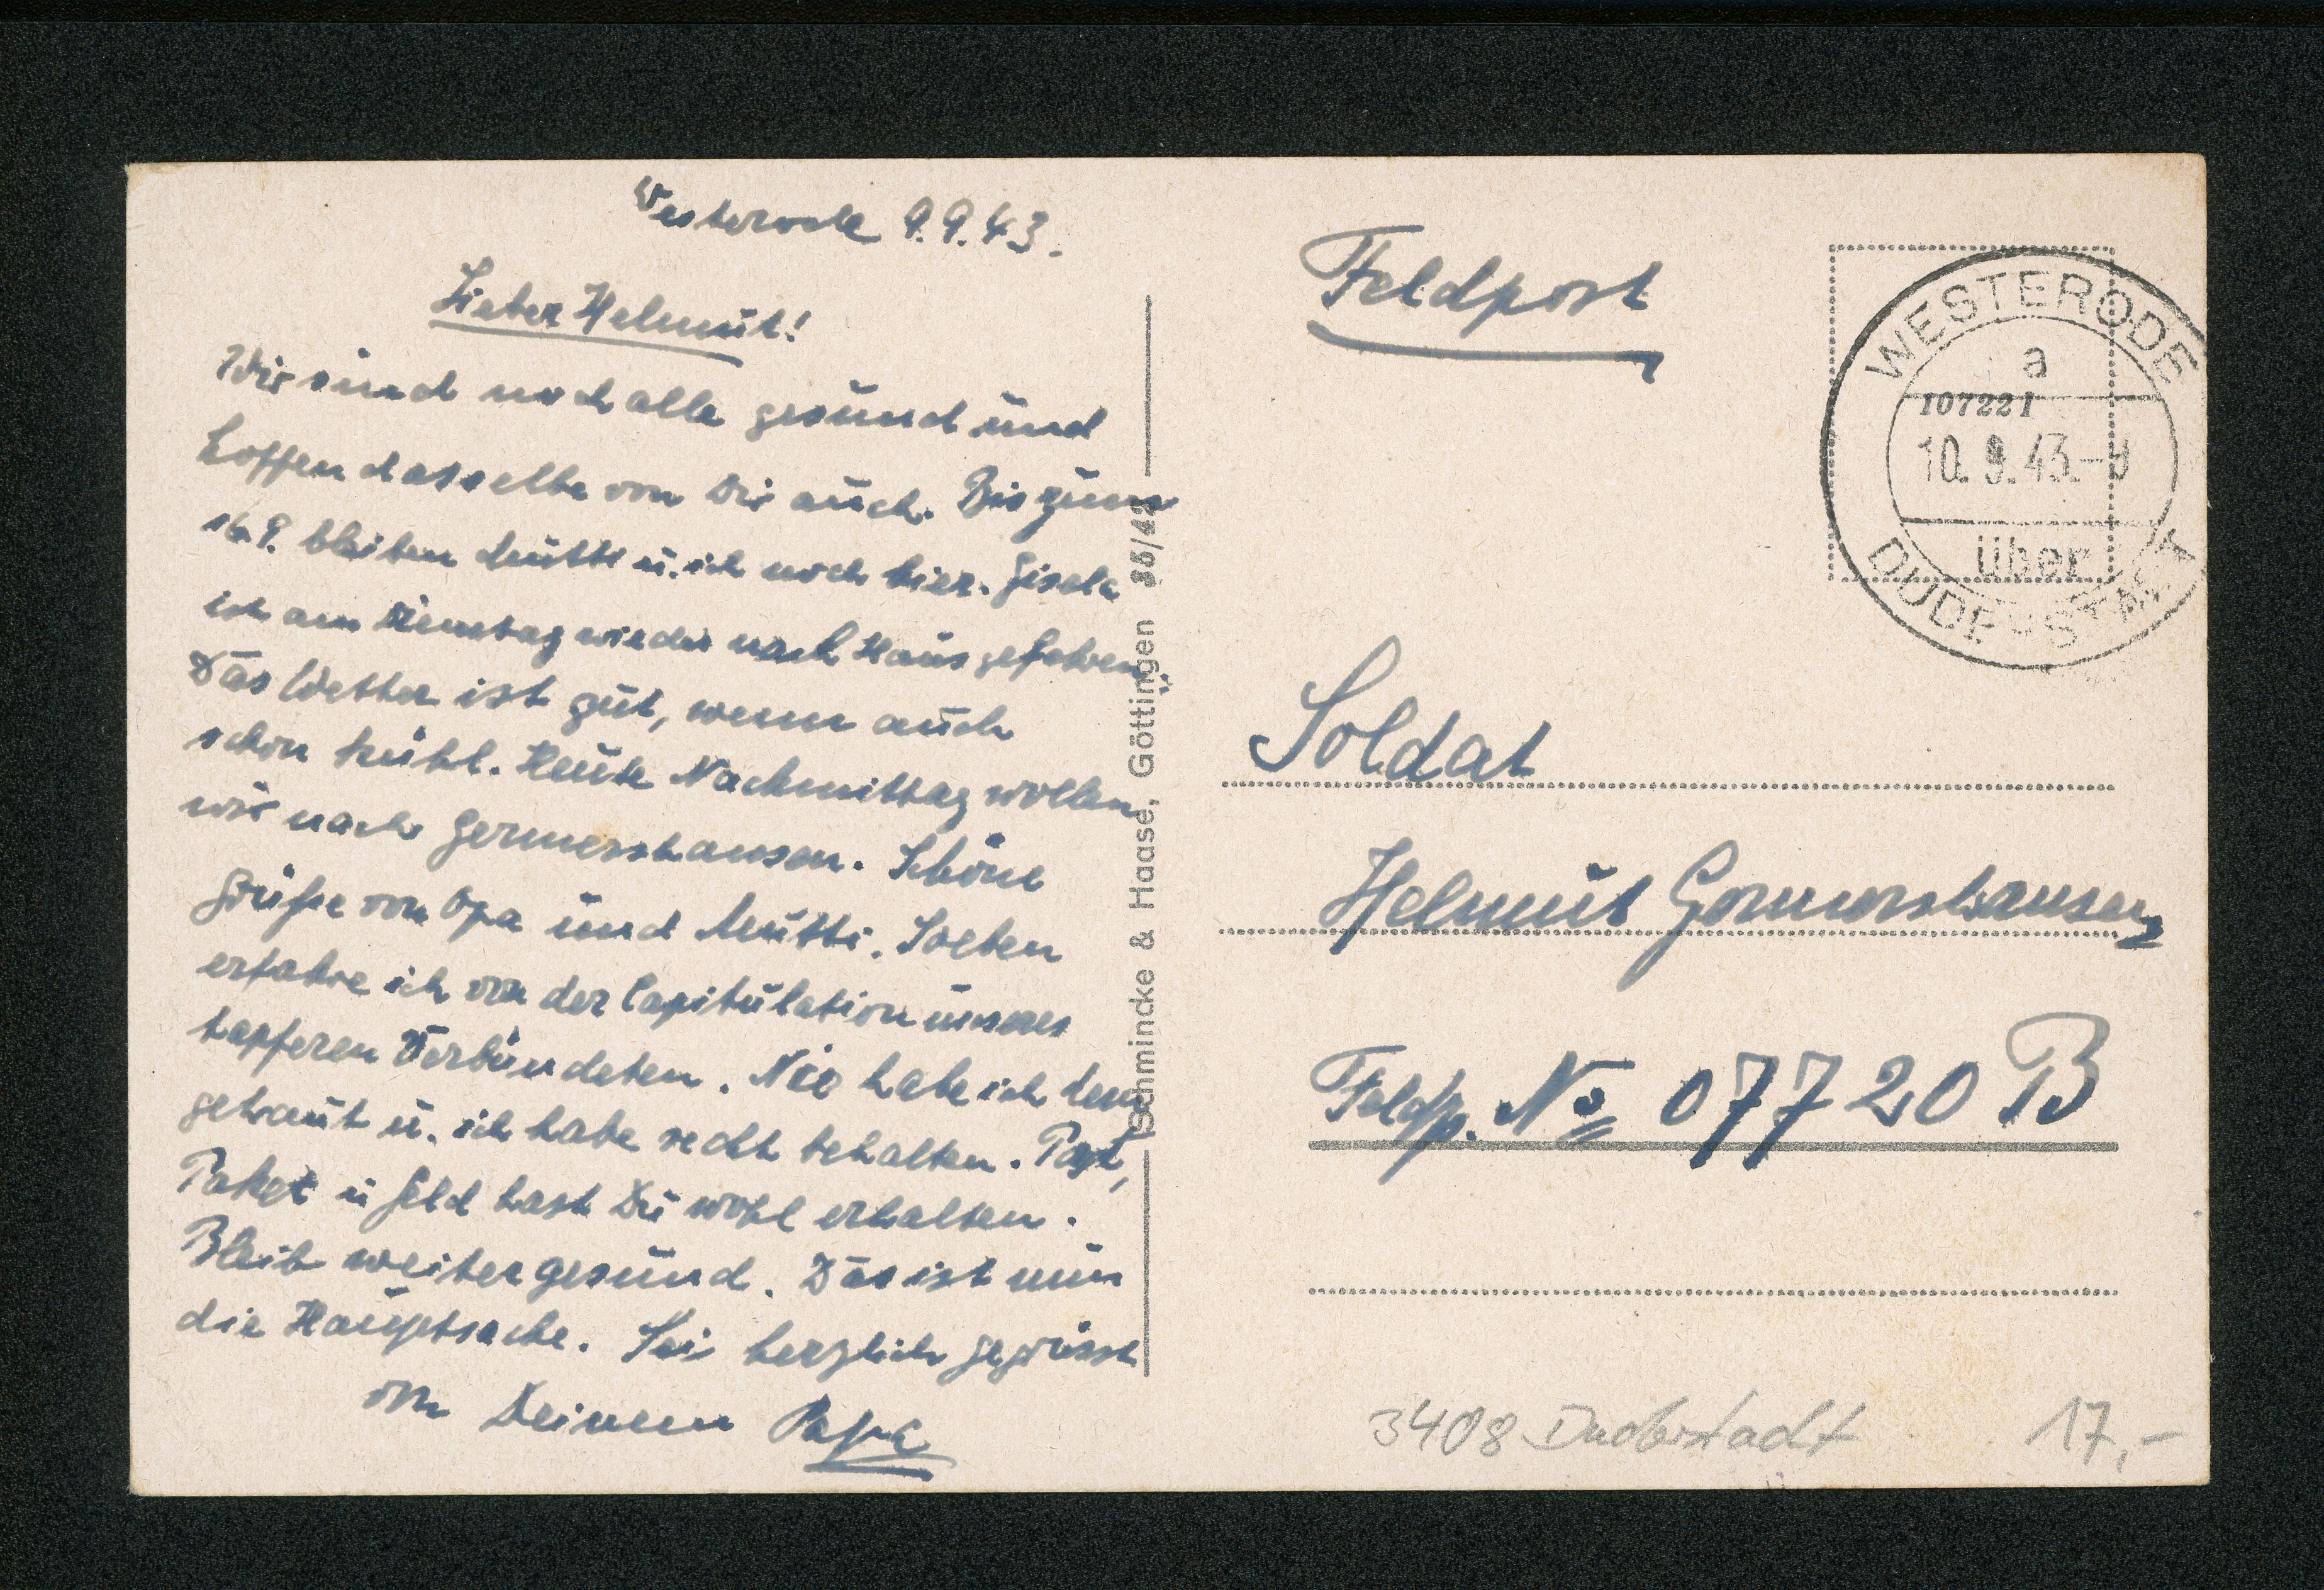 Westerode 9.9.43.
Lieber Helmut!
Wir sind noch alle gesund und
hoffen dasselbe von Dir auch. Bis zum
16.9. bleiben Mutti u. ich noch hier. Gisela
ist am Dienstag wieder nach Haus gefahren.
Das Wetter ist gut, wenn auch
schon kühl. Heute Nachmittag wollen
wir nach Germershausen. Schöne
Grüße von Opa und Mutti. Soeben
erfahre ich von der Capitulation unseres
tapferen Verbündeten. Nie habe ich dem
getraut u. ich habe recht behalten. Post,
Paket u Geld hast Du wohl erhalten.
Bleib weiter gesund. Das ist nun
die Hauptsache. Sei herzlich gegrüsst
von Deinem Papa
Schmincke & Haase, Göttingen 35/42
Feldpost
WESTERODE
a
107221
10.9.43.-9
über
DUDERSTADT
Soldat
Helmut
Feldp. No 07720 B
3408 Duderstadt 17,-